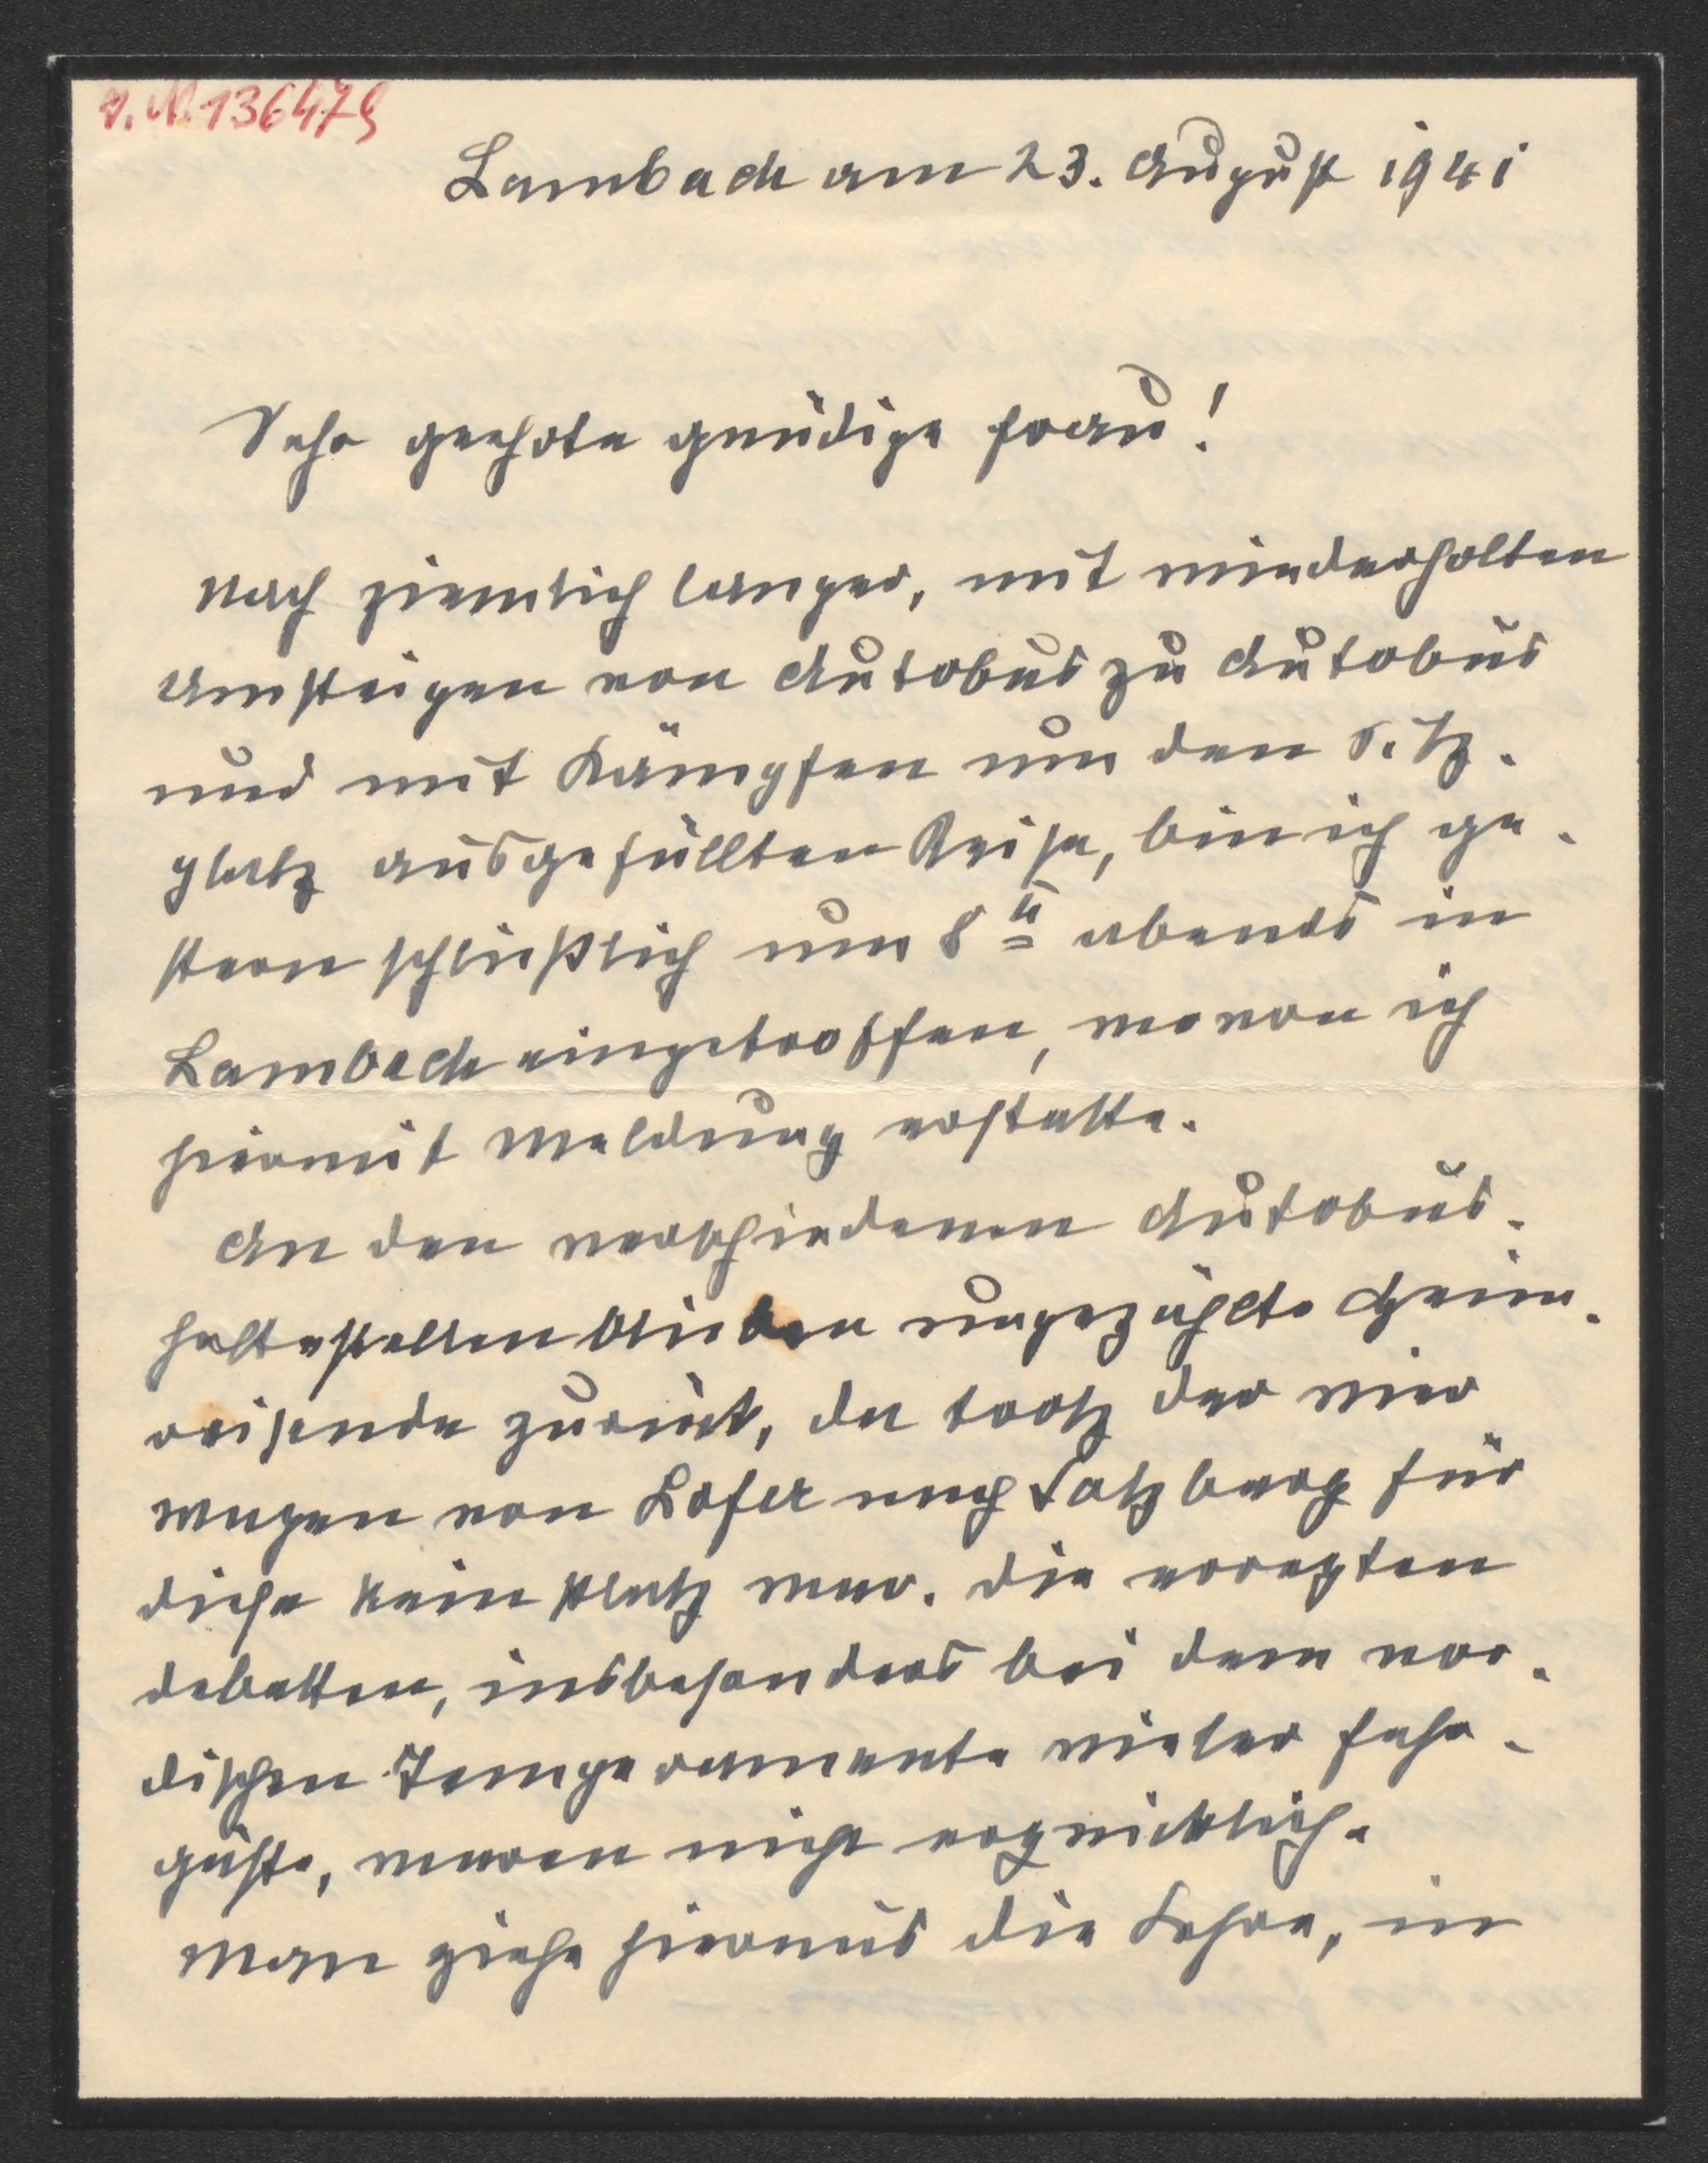 I. N. 136479
Lambach am 23. August 1941
Sehr geehrte gnädige Frau!
Nach ziemlich langer, mit wiederholten
Umsteigen von Autobus zu Autobus
und mit Kämpfen um den Sitz-
platz ausgefüllten Reise, bin ich ge-
stern schließlich um 8 h abends in
Lambach eingetroffen, wovon ich
hiermit Meldung erstatte.
An den verschiedenen Autobus-
haltestellen blieben ungezählte Heim-
reisende zurück, da trotz der vier
Wagen von Lofer nach Salzburg für
diese kein Platz war. Die erregten
Debatten, insbesonders bei dem nor-
dischen Temperamente vieler Fahr-
gäste, waren nicht erquicklich.
Man ziehe hieraus die Lehre, in